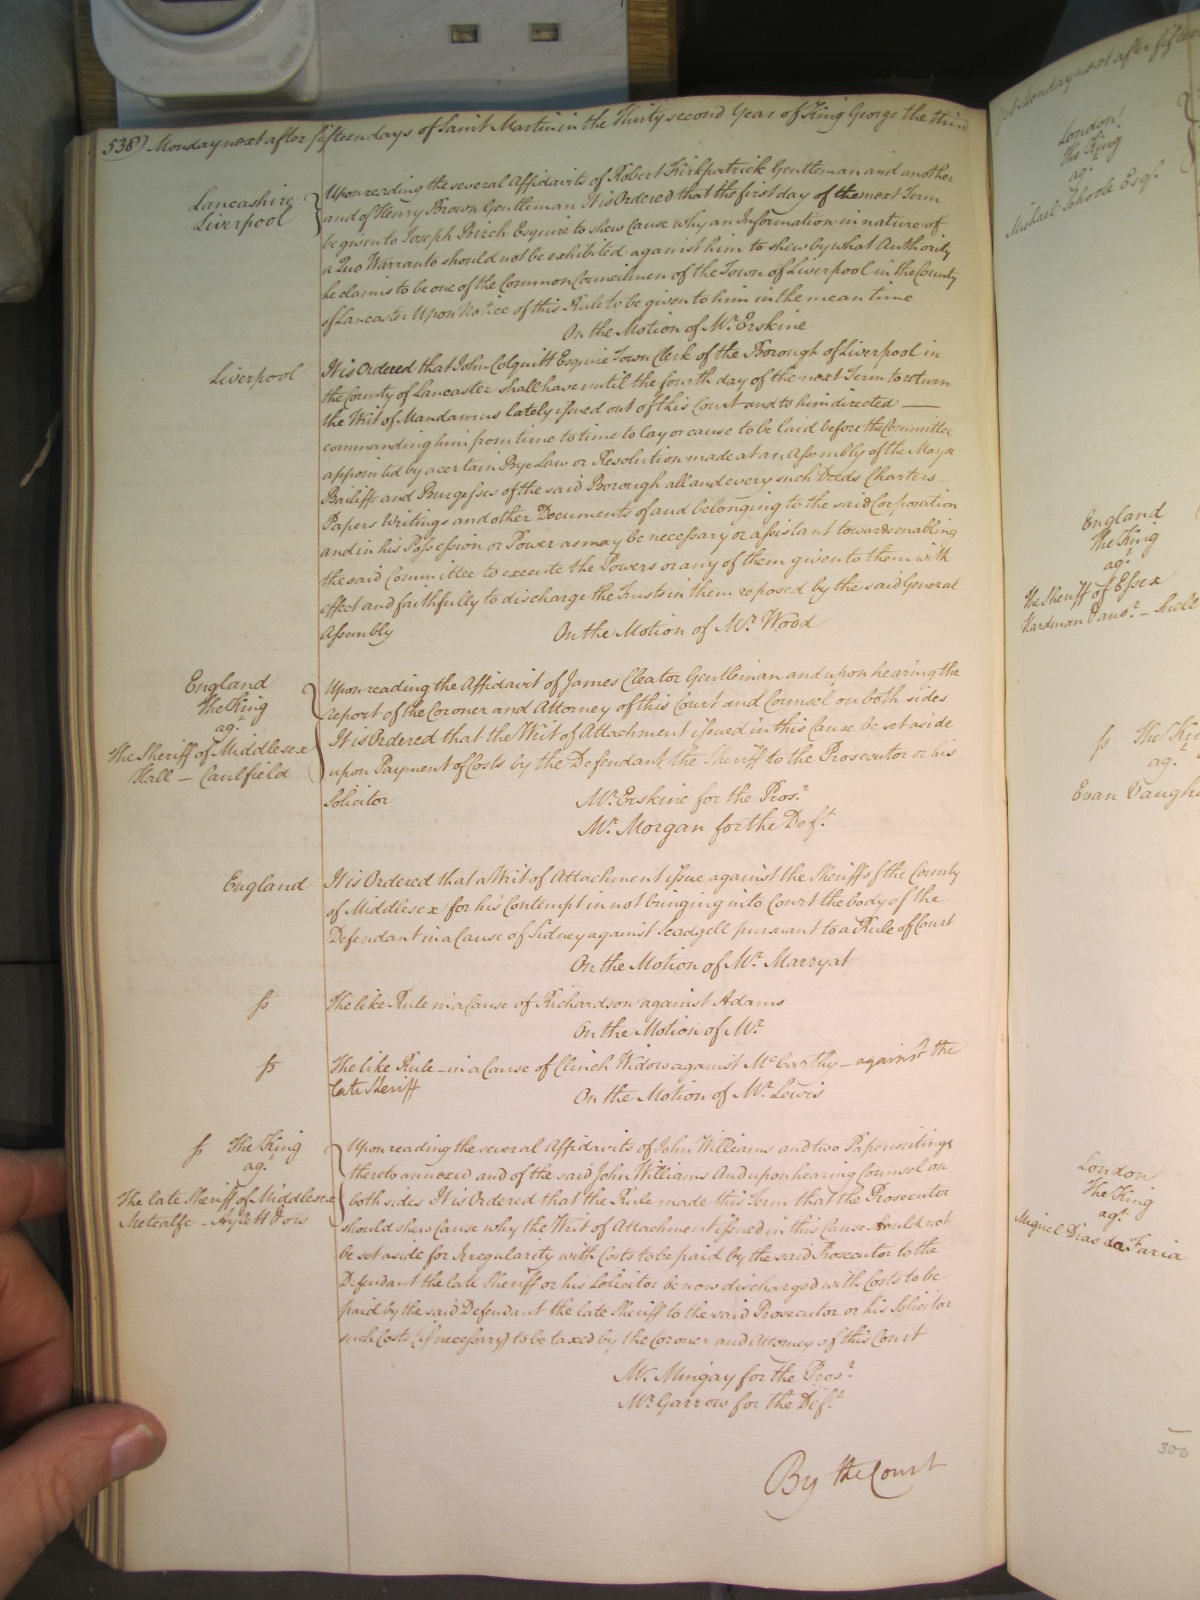 538) Monday next after fifteen days of Saint Martin in the Thirty second Year of King George the third
Lancashire
Liverpool
Upon reading the several Affidavits of Robert Kirkpatrick Gentleman and another
and of Henry Brown Gentleman It is Ordered that the first day of the next Term
be given to Joseph Birch Esquire to shew Cause why an Information in nature of
a Quo Warranto should not be exhibited against him to shew by what Authority
he claims to be one of the Common Councilmen of the Town of Liverpool in the County
of Lancaster Upon Notice of this Rule to be given to him in the mean time
On the Motion of Mr. Erskine
Liverpool
It is Ordered that John Colquitt Esquire Town Clerk of the Borough of Liverpool in
the County of Lancaster shall have until the fourth day of the next Term to return
the Writ of Mandamus lately issued out of this Court and to him directed —
commanding him from time to time to lay or cause to be laid before the Committee
appointed by a certain Bye Law or Resolution made at an Assembly of the Mayor
Bailiffs and Burgesses of the said Borough all and every such Deeds Charters
Papers Writings and other Documents of and belonging to the said Corporation
and in his Possession or Power as may be necessary or assistant towards enabling
the said Committee to execute the Powers or any of them given to them with
effect and faithfully to discharge the Trusts in them reposed by the said General
Assembly
On the Motion of Mr. Wood
England
The King
agt.
The Sheriff of Middlesex
Hall — Caulfield
Upon reading the Affidavit of James Cleator Gentleman and upon hearing the
report of the Coroner and Attorney of this Court and Counsel on both sides
It is Ordered that the Writ of Attachment issued in this Cause be set aside
upon Payment of Costs by the Defendant the Sheriff to the Prosecutor or his
Solicitor
Mr. Erskine for the Pros.r
Mr. Morgan for the Def.t
England
It is Ordered that a Writ of Attachment issue against the Sheriff of the County
of Middlesex for his Contempt in not bringing into Court the body of the
Defendant in a Cause of Sidney against Seadgell pursuant to a Rule of Court
On the Motion of Mr. Marryat
ss
The like Rule in a Cause of Richardson against Adams
On the Motion of Mr.
ss
The like Rule — in a Cause of Clinch Widow against McCarthy — against the
late Sheriff
On the Motion of Mr. Lewis
ss The King
agt.
The late Sheriff of Middlesex
Metcalfe —
Upon reading the several Affidavits of John Williams and two Paperwritings
thereto annexed and of the said John Williams And upon hearing Counsel on
both sides It is Ordered that the Rule made this Term that the Prosecutor
should shew Cause why the Writ of Attachment issued in this Cause should not
be set aside for Irregularity with Costs to be paid by the said Prosecutor to the
Defendant the late Sheriff or his Solicitor be now discharged with Costs to be
paid by the said Defendant the late Sheriff to the said Prosecutor or his Solicitor
such Costs (if necessary) to be taxed by the Coroner and Attorney of this Court
Mr. Mingay for the Pros.r
Mr. Garrow for the Def.t
By the Court
Monday next after
London
The King
agt.
Michael Esqr.
England
The King
agt.
The Sheriff of Essex
Hardman
ss The King
agt.
Evan
London
The King
agt.
Miguel Dias da Faria
300